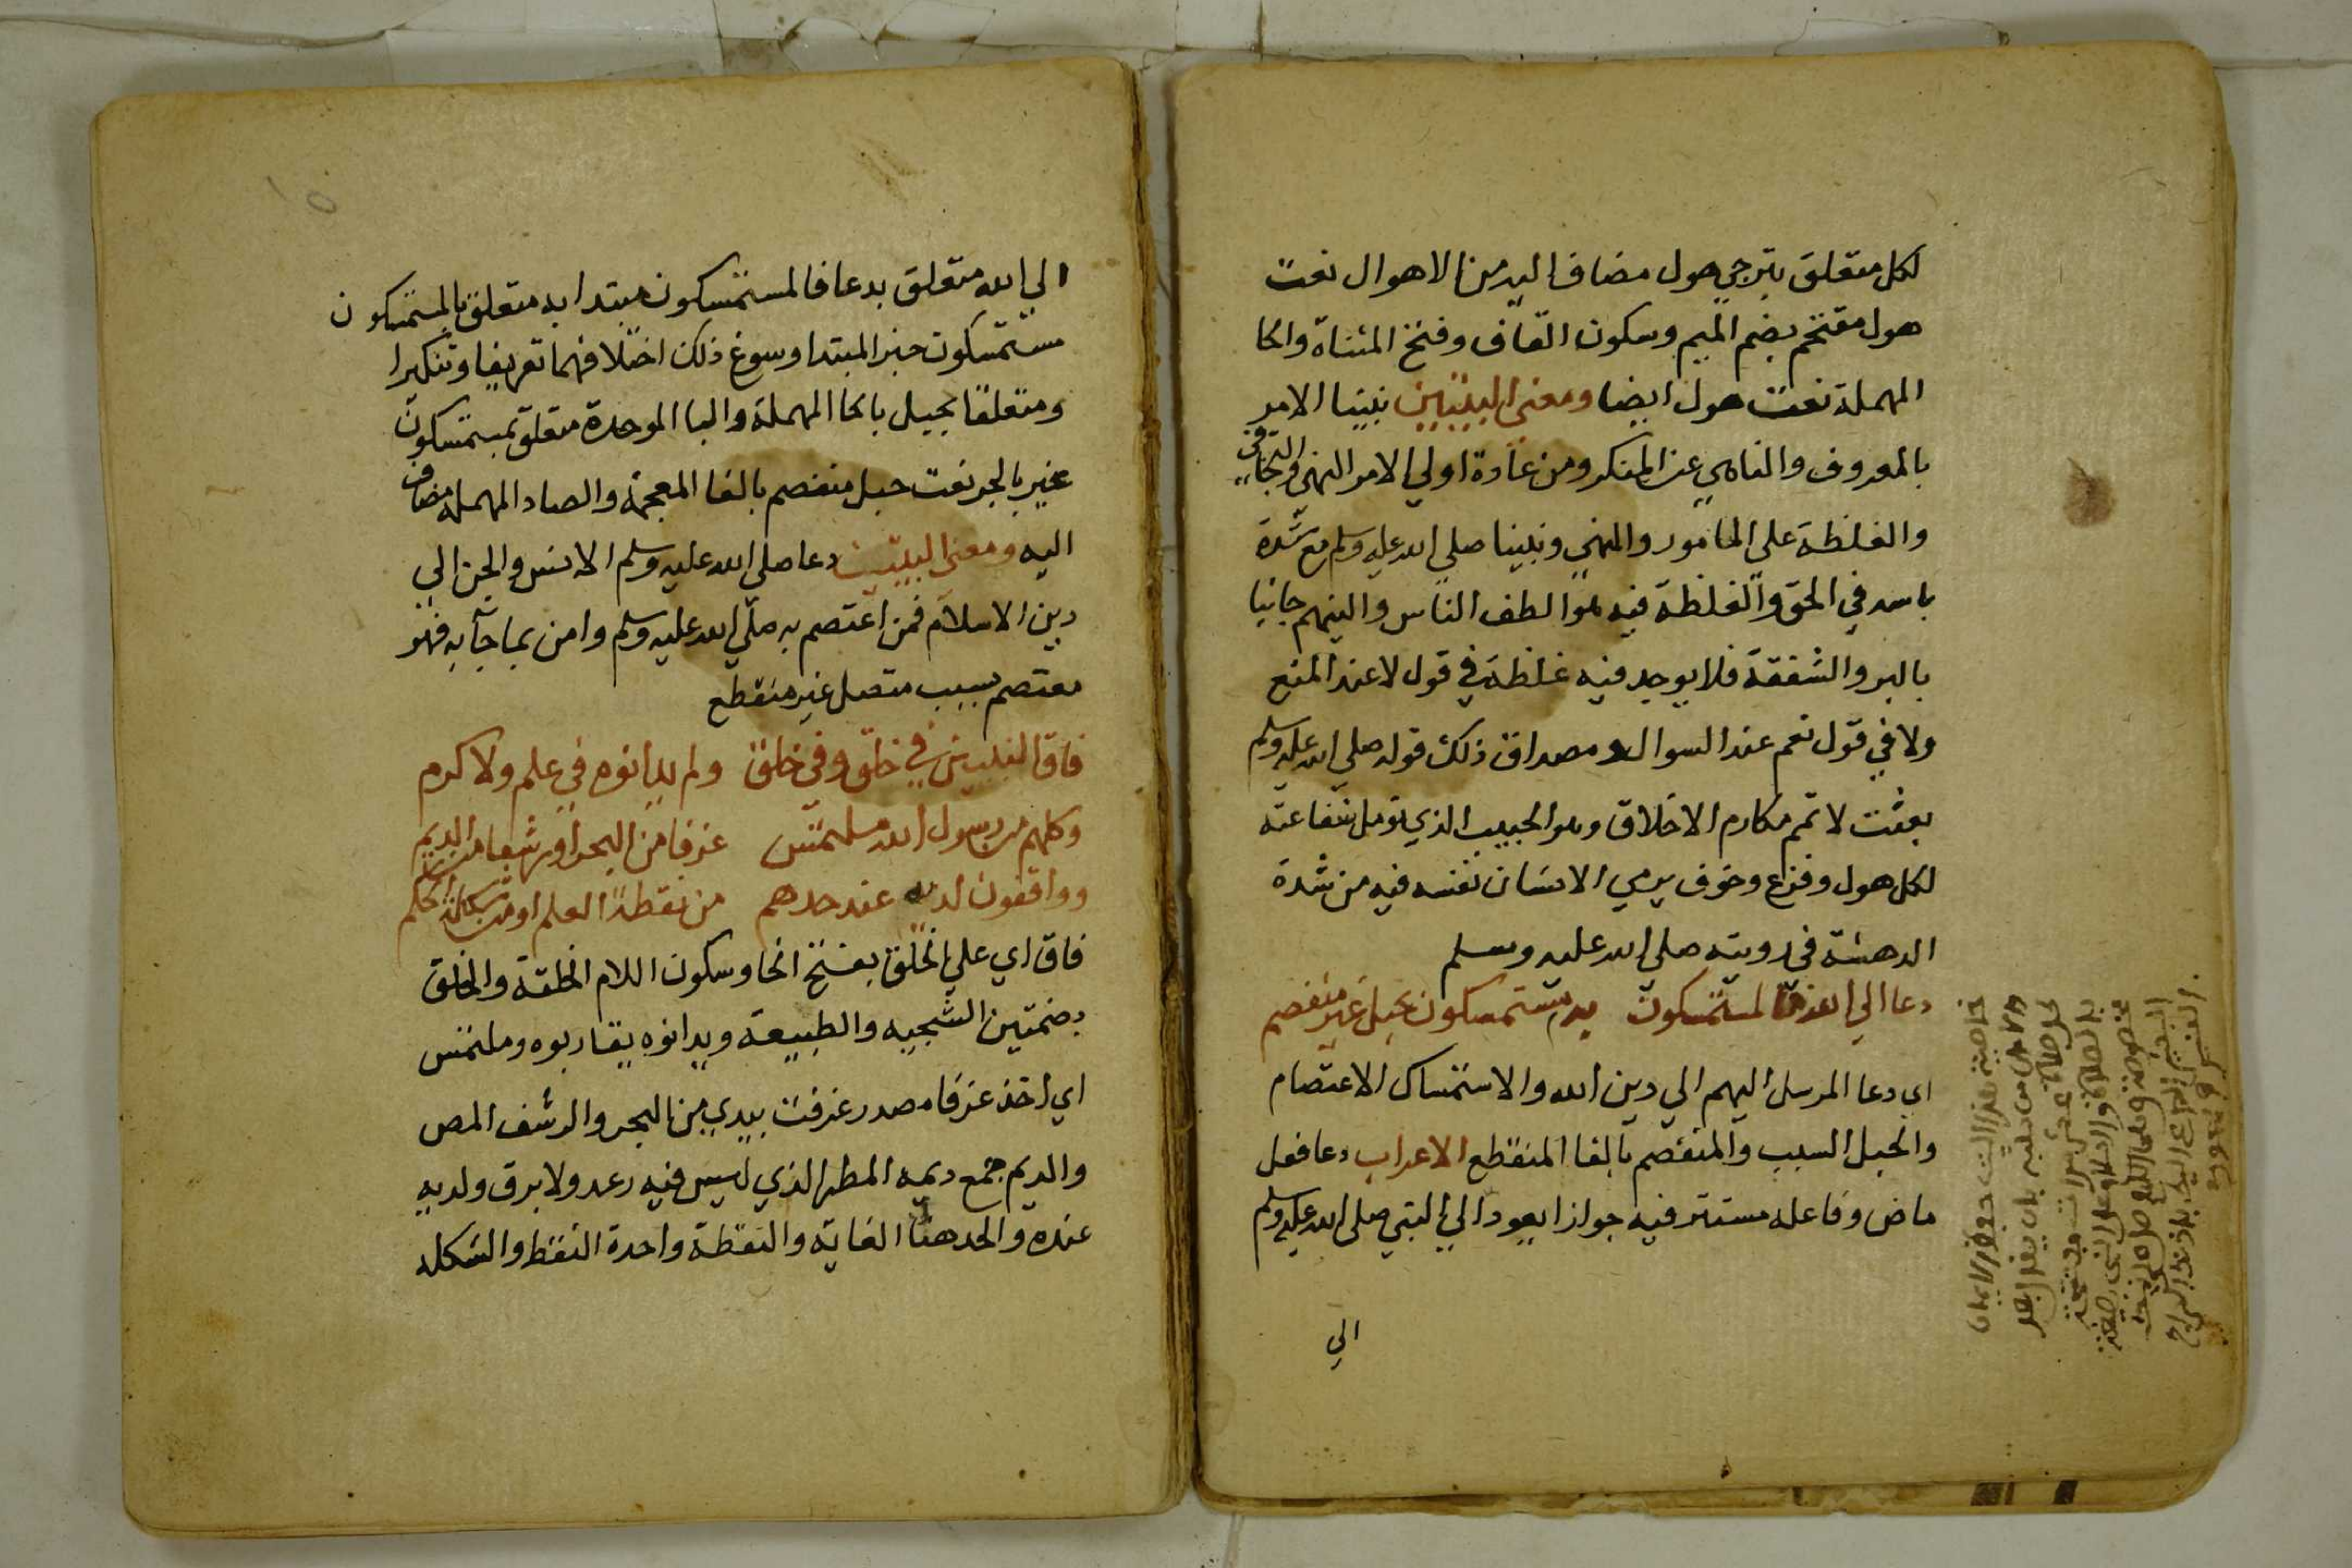 لكل متعلق بترجي هول مضاف اليه من الاهوال نعت
هول مقتحم بضم الميم وسكون القاف وفتح المثناة والحا
المهملة نعت هول ايضا ومعنى البيتين نبينا الامر
بالمعروف والناهي عن المنكر ومن عادة اولي الامر النهي والتجافي
والغلظة علي المامور والمنهي ونبينا صلي الله عليه وسلم مع شدة
باسه في الحق والغلظة فيه هو الطف الناس والينهم جانبا
بالبر والشفقة فلا يوجد فيه غلظة في قول لا عند المنع
ولا في قول نعم عند السوال ومصداق ذلك قوله صلي الله عليه وسلم
بعثت لاتمم مكارم الاخلاق وهو الحبيب الذي تومل شفاعته
لكل هول وفزع وخوف يرمي الانسان نفسه فيه من شدة
الدهشة في رويته صلي الله عليه وسلم
دعا الي الله فالمستمسكون به مستمسكون بحبل غير منفصم
اي دعا المرسل اليهم الي دين الله والاستمساك الاعتصام
والحبل السبب والمنفصم بالفا المنقطع الاعراب دعا فعل
ماض وفاعله مستتر فيه جوازا يعود الي النبي صلي الله عليه وسلم
الي
خاصية هذا البيت
الي الله متعلق بدعا فالمستمسكون مبتدا به متعلق بالمستمسكون
مستمسكون خبر المبتدا وسوغ ذلك اختلافهما تعريفا وتنكيرا
ومتعلقا بحبل بالحا المهملة والبا الموحدة متعلق بمستمسكون
غير بالجر نعت حبل منفصم بالفا المعجمة والصاد المهملة مضاف
اليه ومعنى البيت دعا صلي الله عليه وسلم الانس والجن الي
دين الاسلام فمن اعتصم به صلي الله عليه وسلم وامن بما جآ به فهو
معتصم بسبب متصل غير منقطع
فاق النبيين في خلق وفي خلق ولم يدانوه في علم ولا كرم
وكلهم من رسول الله ملتمس غرفا من البحر او رشفا من الديم
وواقفون لديه عند حدهم من نقطة العلم او من شكلة الحكم
فاق اي علي الخلق بفتح الخا وسكون اللام الخلقة والخلق
بضمتين السجيه والطبيعة ويدانوه يقاربوه وملتمس
اي اخذ غرفا مصدر غرفت بيدي من البحر والرشف المص
والديم جمع ديمه المطر الذي ليس فيه رعد ولا برق ولديه
عنده والحد هنا الغاية والنقطة واحدة النقط والشكله